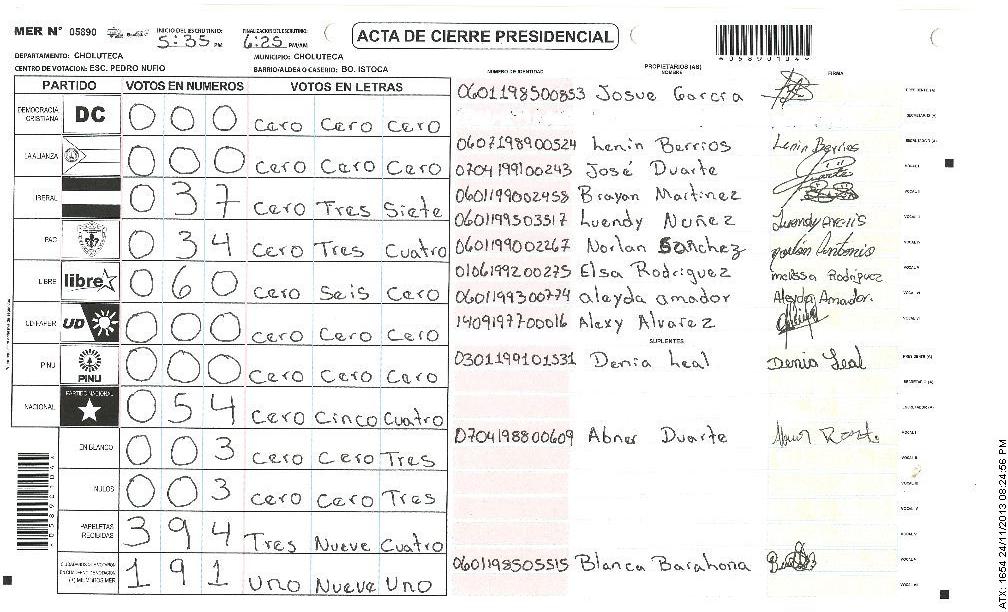 MER N° 05890 INICIO DEL ESCRUTINIO: 5:35 PM FINALIZACION DEL ESCRUTINIO: 6:25 PM/AM ACTA DE CIERRE PRESIDENCIAL
DEPARTAMENTO: CHOLUTECA MUNICIPIO: CHOLUTECA
CENTRO DE VOTACION: ESC. PEDRO NUFIO BARRIO/ALDEA O CASERIO: BO. ISTOCA
NUMERO DE IDENTIDAD PROPIETARIOS (AS) NOMBRE FIRMA
PARTIDO VOTOS EN NUMEROS VOTOS EN LETRAS
DEMOCRACIA CRISTIANA DC 0 0 0 Cero Cero Cero
LA ALIANZA 0 0 0 Cero Cero Cero
LIBERAL 0 3 7 Cero Tres Siete
PAC 0 3 4 Cero Tres Cuatro
LIBRE libre 0 6 0 Cero Seis Cero
UD-FAPER UD 0 0 0 Cero Cero Cero
PINU PINU 0 0 0 Cero Cero Cero
NACIONAL PARTIDO NACIONAL 0 5 4 Cero Cinco Cuatro
EN BLANCO 0 0 3 Cero Cero Tres
NULOS 0 0 3 Cero Cero Tres
PAPELETAS RECIBIDAS 3 9 4 Tres Nueve Cuatro
1 9 1 Uno Nueve Uno
0601198500853 Josue Garcia
0607198900524 Lenin Berrios Lenin Berrios
0704199100243 José Duarte Duarte
0601199002458 Brayan Martinez
0601199503517 Luendy Nuñez
0601199002267 Norlan Sanchez
0106199200275 Elsa Rodriguez melissa Rodriguez
0601199300774 aleyda amador Aleyda Amador.
1409197700016 Alexy Alvarez
SUPLENTES
0301199101531 Denia Leal Denia Leal
0704198800609 Abner Duarte
0601198505515 Blanca Barahona
ATX: 1654 24/11/2013 08:24:56 PM